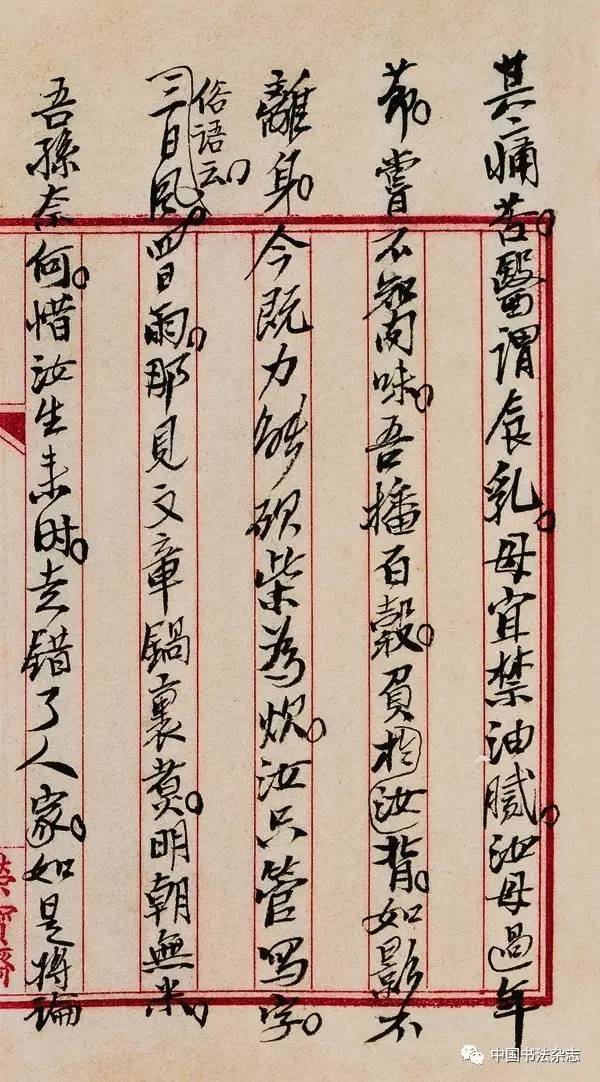 其痛苦。醫謂食乳。母宜禁油膩。汝母過年
節。嘗不知肉味。吾播百穀。負於汝背。如影不
離身。今既力能砍柴為炊。汝只管寫字。
俗语云。
三日風。四日雨。那見文章鍋裏煮。明朝無米。
吾孫奈何。惜汝生来时。走錯了人家。如是將論
榮寶齋
中国书法杂志